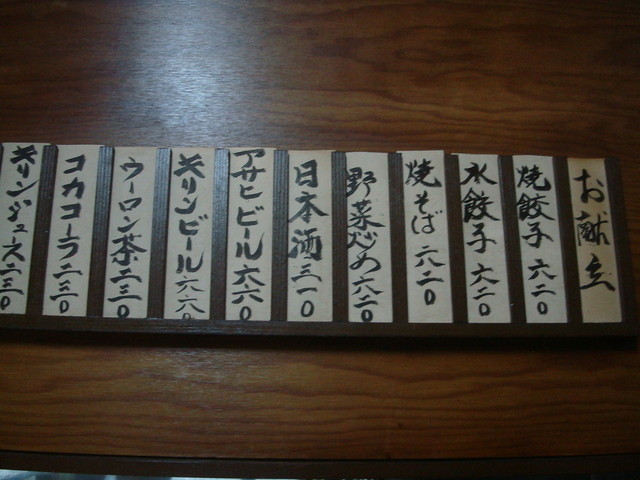 お献立
焼餃子 六二〇
水餃子 六二〇
焼そば 六二〇
野菜炒め 六二〇
日本酒 三一〇
アサヒビール 六六〇
キリンビール 六六〇
ウーロン茶 二三〇
コカコーラ 二三〇
キリンジュース 二三〇